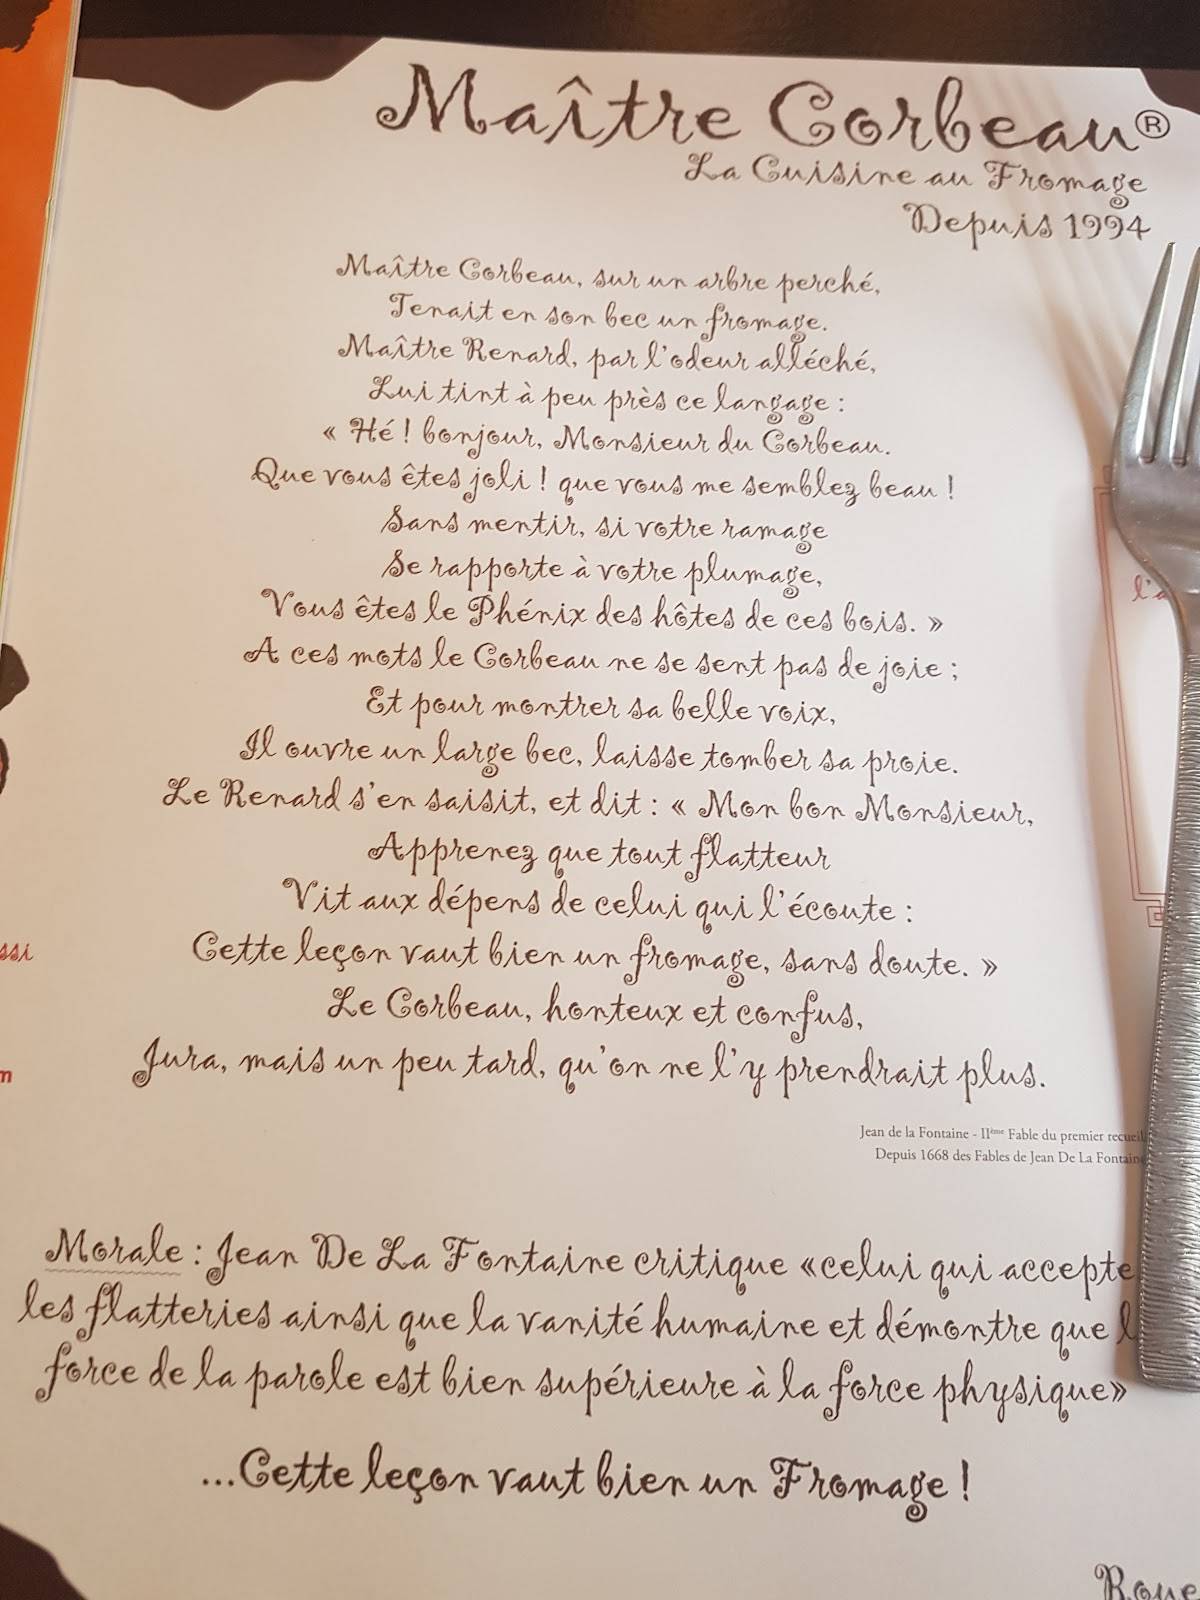 Maître Corbeau®
La Cuisine au Fromage
Depuis 1994
Maître Corbeau, sur un arbre perché,
Tenait en son bec un fromage.
Maître Renard, par l'odeur alléché,
Lui tint à peu près ce langage :
« Hé ! bonjour, Monsieur du Corbeau.
Que vous êtes joli ! que vous me semblez beau !
Sans mentir, si votre ramage
Se rapporte à votre plumage,
Vous êtes le Phénix des hôtes de ces bois. »
A ces mots le Corbeau ne se sent pas de joie ;
Et pour montrer sa belle voix,
Il ouvre un large bec, laisse tomber sa proie.
Le Renard s'en saisit, et dit : « Mon bon Monsieur,
Apprenez que tout flatteur
Vit aux dépens de celui qui l'écoute :
Cette leçon vaut bien un fromage, sans doute. »
Le Corbeau, honteux et confus,
Jura, mais un peu tard, qu'on ne l'y prendrait plus.
Jean de la Fontaine - IIème Fable du premier recueil
Depuis 1668 des Fables de Jean De La Fontaine
Morale : Jean De La Fontaine critique «celui qui accepte
les flatteries ainsi que la vanité humaine et démontre que
force de la parole est bien supérieure à la force physique»
...Cette leçon vaut bien un Fromage !